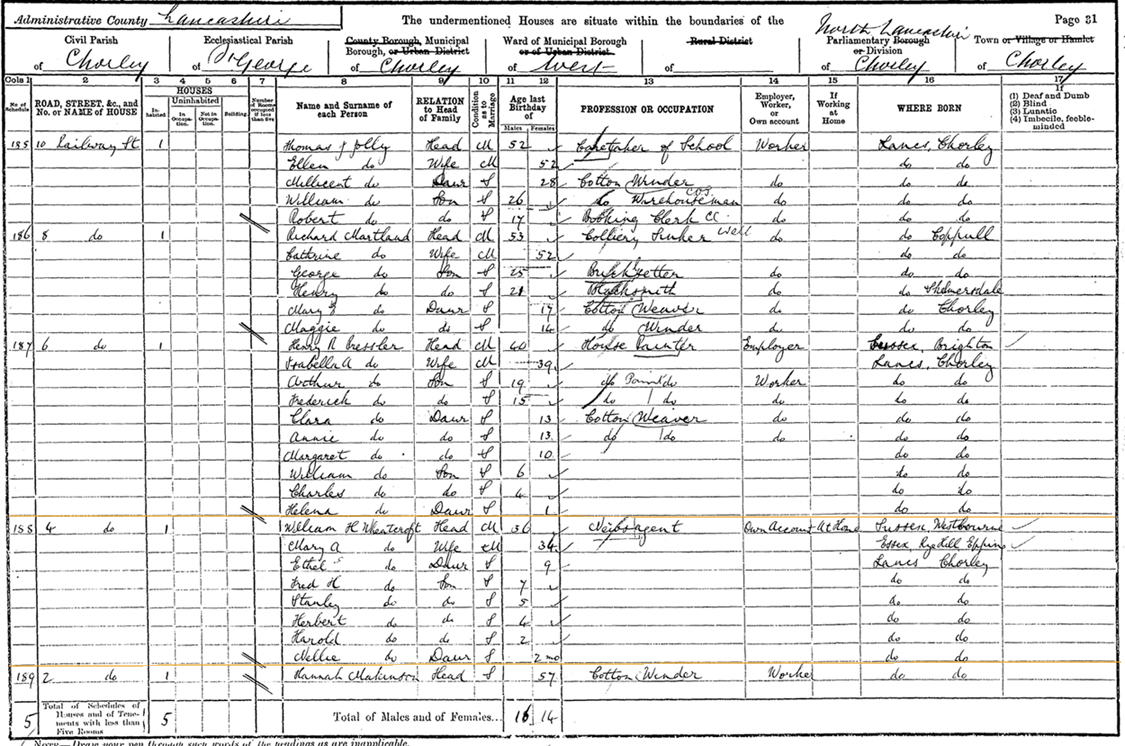 Administrative County Lancashire The undermentioned Houses are situate within the boundaries of the Page 31
Civil Parish Ecclesiastical Parish County Borough, Municipal Borough, or Urban District Ward of Municipal Borough or of Urban District Rural District Parliamentary Borough or Division Town or Village or Hamlet
North Lancashire
of Chorley of St George of Chorley of West of of Chorley of Chorley
Cols 1 2 3 4 5 6 7 8 9 10 11 12 13 14 15 16 17
No. of Schedule ROAD, STREET, &c., and No. or NAME of HOUSE HOUSES Inhabited Uninhabited In Occupation. Not in Occupation. Building. Number of Rooms occupied if less than five Name and Surname of each Person RELATION to Head of Family Condition as to Marriage Age last Birthday of Males Females PROFESSION OR OCCUPATION Employer, Worker, or Own account If Working at Home WHERE BORN If (1) Deaf and Dumb (2) Blind (3) Lunatic (4) Imbecile, feeble-minded
185 10 Railway St 1 Thomas J Jolly Head M 52 Caretaker of School Worker Lancs, Chorley
Ellen do Wife M 52 do do
Millicent do Daur S 28 Cotton Winder do do do
William do Son S 26 do Warehouseman do do do
Robert do do S 17 Booking Clerk do do do
186 8 do 1 Richard Martland Head M 53 Colliery Sinker Well do do Coppull
Cathrine do Wife M 52 do do
George do Son S 25 Bricksetter do do do
Henry do do S 21 Blacksmith do do Skelmersdale
Mary do Daur S 17 Cotton Weaver do do Chorley
Maggie do do S 14 do Winder do do do
187 6 do 1 Henry R Pressler Head M 40 House Painter Employer Sussex, Brighton
Isabella A do Wife M 39 Lancs, Chorley
Arthur do Son S 19 do Paint do Worker do do
Frederick do do S 15 do do do do do
Clara do Daur S 13 Cotton Weaver do do do
Annie do do S 13 do do do do do
Margaret do do S 10 do do
William do Son S 6 do do
Charles do do S 4 do do
Helena do Daur S 1 do do
188 4 do 1 William H Wheatcroft Head M 36 Newsagent Own Account At Home Sussex, Westbourne
Mary A do Wife M 34 Essex, Rye Hill, Epping
Ethel do Daur S 9 Lancs Chorley
Fred H do Son S 7 do do
Stanley do do S 5 do do
Herbert do do S 4 do do
Harold do do S 2 do do
Nellie do Daur S 2 mo do do
189 2 do 1 Hannah Makinson Head S 57 Cotton Winder Worker do do
5 Total of Schedules of Houses and of Tenements with less than Five Rooms 5 Total of Males and of Females... 16 14
NOTE—Draw your pen through such words of the headings as are inapplicable.